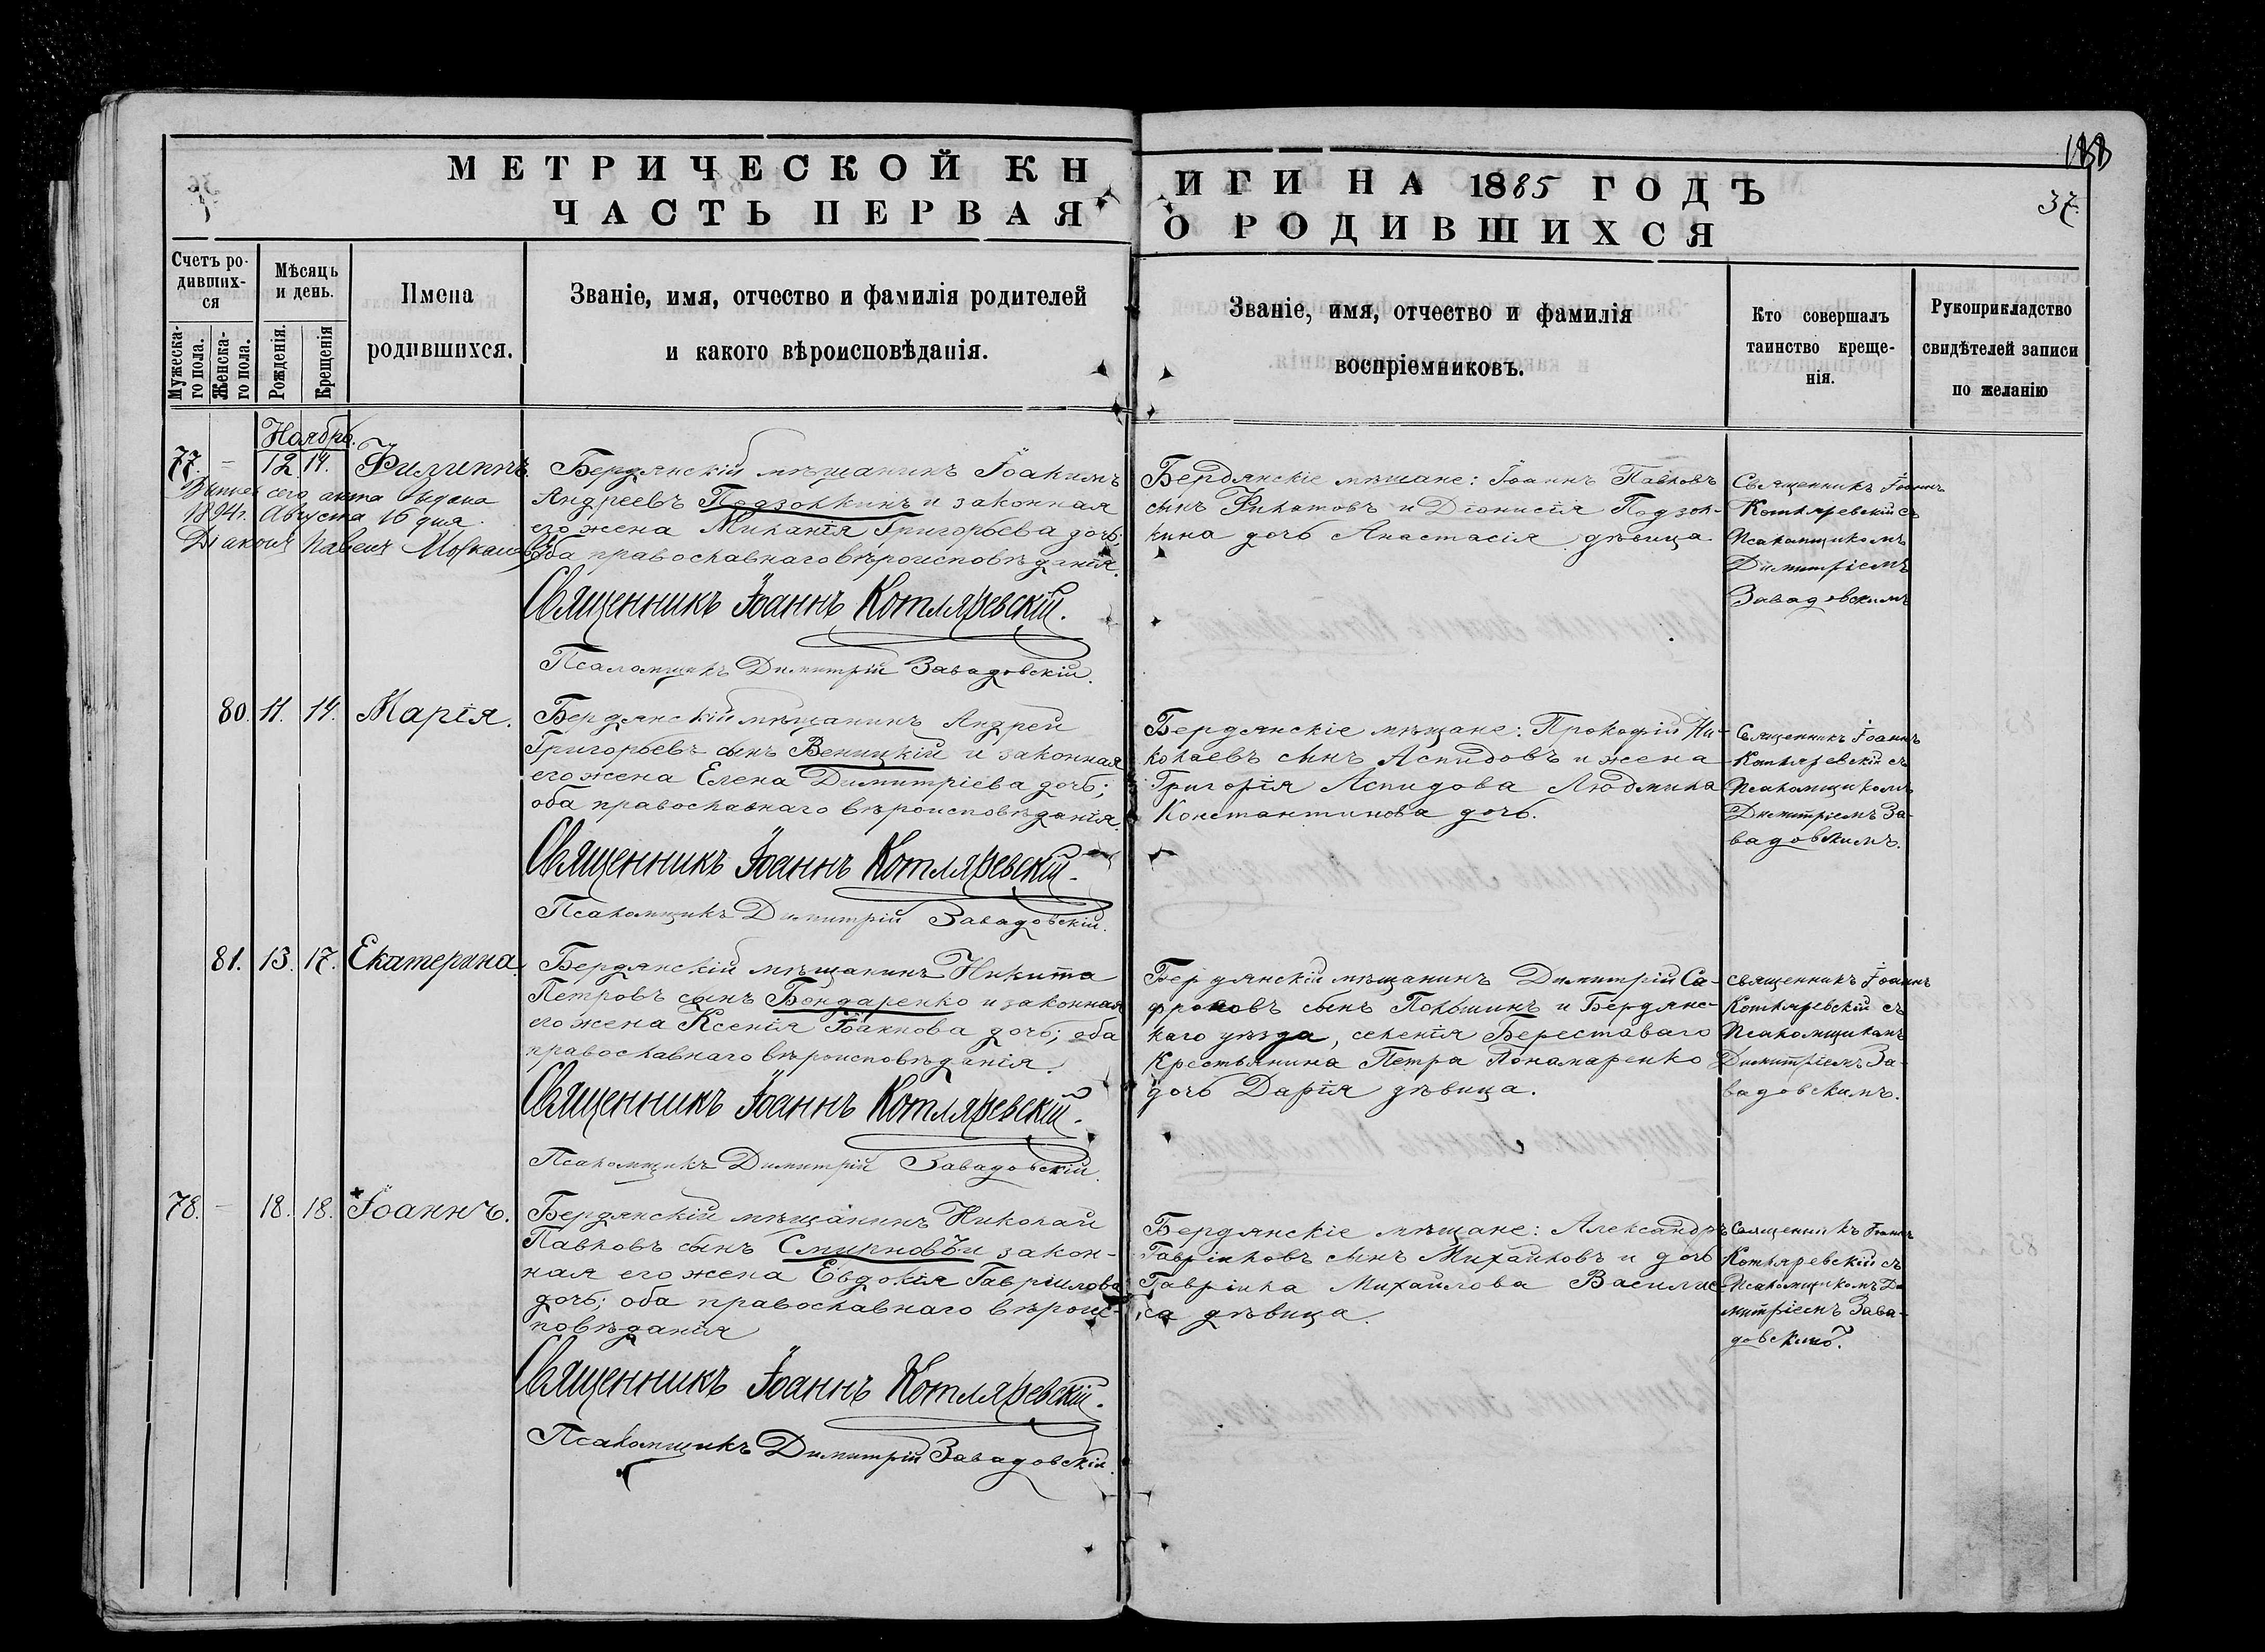 188
МЕТРИЧЕСКОЙ КНИГИ НА 1885 ГОДЪ
37.
ЧАСТЬ ПЕРВАЯ О РОДИВШИХСЯ
Счетъ родившихся
Мужескаго пола.
Женскаго пола.
Мѣсяцъ и день.
Рожденія.
Крещенія
Имена
родившихся.
Званіе, имя, отчество и фамилія родителей
и какого вѣроисповѣданія.
Званіе, имя, отчество и фамилія
воспріемниковъ.
Кто совершалъ
таинство креще-
нія.
Рукоприкладство
свидѣтелей записи
по желанію
Ноябрь.
77. – 12 14. Филиппъ.
сего акта выдана
1894г. Августа 16 дня.
Діаконъ Павелъ
Бердянскій мѣщанинъ Іоакимъ
Андреевъ Подзолкинъ и законная
его жена Миланія Григорьева дочь;
оба православнаго вѣроисповѣданія.
Священникъ Іоаннъ Котляревскій.
Псаломщикъ Димитрій Завадовскій.
Бердянскіе мѣщане: Іоаннъ Павловъ
сынъ Филатовъ и Діонисія Подзол-
кина дочь Анастасія дѣвица
Священникъ Іоаннъ
Котляревскій съ
Псаломщикомъ
Димитріемъ
Завадовскимъ
80. 11. 14. Марія.
Бердянскій мѣщанинъ Андрей
Григорьевъ сынъ Веницкій и законная
его жена Елена Димитріева дочь;
оба православнаго вѣроисповѣданія.
Священникъ Іоаннъ Котляревскій.
Псаломщикъ Димитрій Завадовскій.
Бердянскіе мѣщане: Прокофій Ни-
колаевъ сынъ Аспидовъ и жена
Григорія Аспидова Людмила
Константинова дочь.
Священникъ Іоаннъ
Котляревскій съ
Псаломщикомъ
Димитріемъ За-
вадовскимъ.
81. 13. 17. Екатерина.
Бердянскій мѣщанинъ Никита
Петровъ сынъ Бондаренко и законная
его жена Ксенія Іоаннова дочь; оба
православнаго вѣроисповѣданія.
Священникъ Іоаннъ Котляревскій.
Псаломщикъ Димитрій Завадовскій.
Бердянскій мѣщанинъ Димитрій Са-
фроновъ сынъ Польшинъ и Бердянс-
каго уѣзда, селенія Берестоваго
Крестьянина Петра Понамаренко
дочь Дарія дѣвица.
священникъ Іоаннъ
Котляревскій съ
Псаломщикомъ
Димитріемъ За-
вадовскимъ.
78. – 18. 18. Іоаннъ.
Бердянскій мѣщанинъ Николай
Павловъ сынъ Смирновъ и закон-
ная его жена Евдокія Гавріилова
дочь; оба православнаго вѣроис-
повѣданія
Священникъ Іоаннъ Котляревскій.
Псаломщикъ Димитрій Завадовскій.
Бердянскіе мѣщане: Александръ
Гавріиловъ сынъ Михайловъ и дочь
Гавріила Михайлова Васили-
са дѣвица.
Священникъ Іоаннъ
Котляревскій съ
Псаломщикомъ Ди-
митріемъ Зава-
довскимъ.